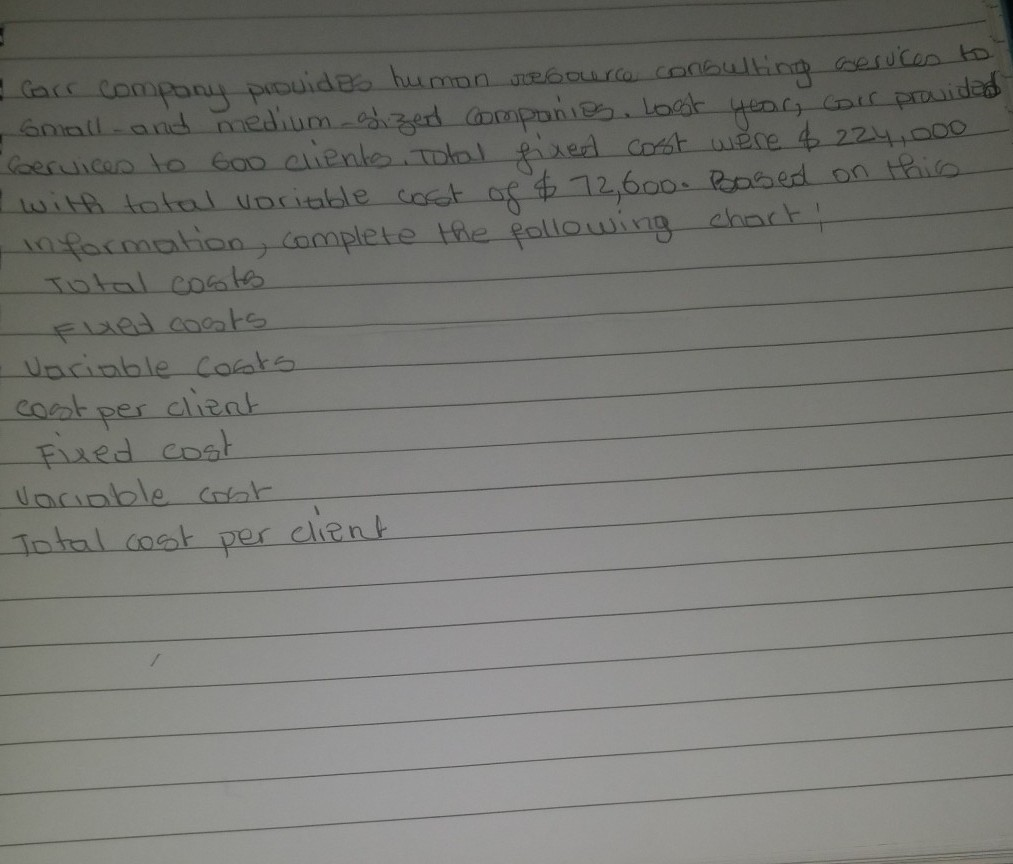 Carr company provides human resource consulting services to
small-and medium-sized companies. Last year, Carr provided
services to 600 clients. Total fixed cost were $ 224,000
with total variable cost of $ 72,600. Based on this
information, complete the following chart!
Total costs
Fixed costs
Variable costs
cost per client
Fixed cost
Variable cost
Total cost per client